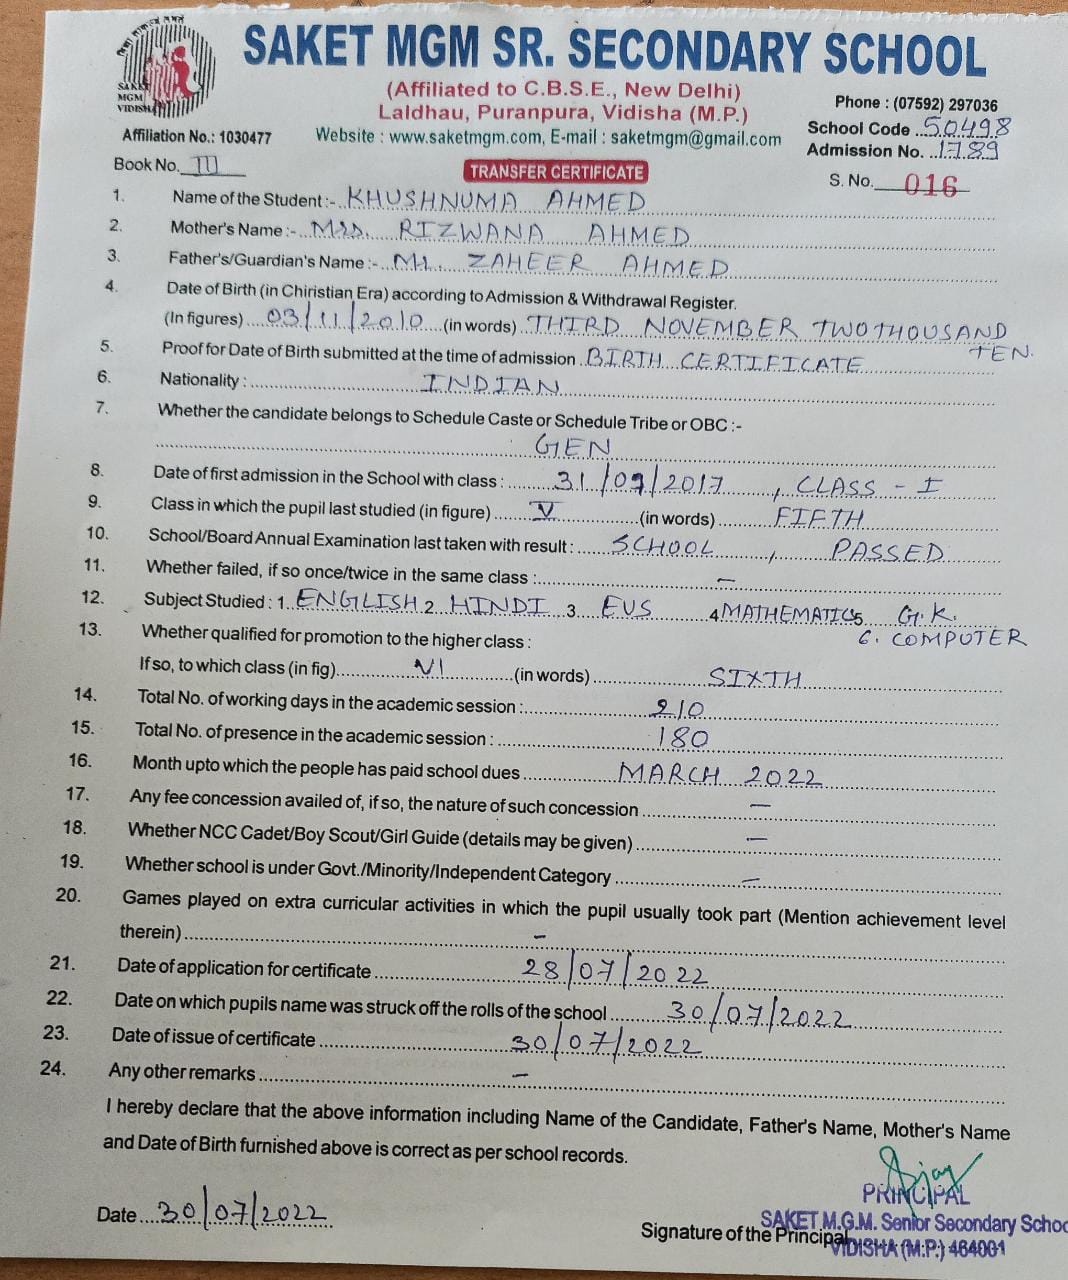 SAKET MGM SR. SECONDARY SCHOOL
SAKET
MGM
VIDISHA
(Affiliated to C.B.S.E., New Delhi)
Laldhau, Puranpura, Vidisha (M.P.)
Phone : (07592) 297036
Affiliation No.: 1030477
Website : www.saketmgm.com, E-mail : saketmgm@gmail.com
School Code 50498
Admission No. 1789
Book No. III
TRANSFER CERTIFICATE
S. No. 016
1. Name of the Student :- KHUSHNUMA AHMED
2. Mother's Name :- Mrs. RIZWANA AHMED
3. Father's/Guardian's Name :- Mr. ZAHEER AHMED
4. Date of Birth (in Chiristian Era) according to Admission & Withdrawal Register.
(In figures) 03/11/2010 (in words) THIRD NOVEMBER TWO THOUSAND
TEN.
5. Proof for Date of Birth submitted at the time of admission BIRTH CERTIFICATE
6. Nationality : INDIAN
7. Whether the candidate belongs to Schedule Caste or Schedule Tribe or OBC :-
GEN
8. Date of first admission in the School with class : 31/07/2017, CLASS - I
9. Class in which the pupil last studied (in figure) V (in words) FIFTH
10. School/Board Annual Examination last taken with result : SCHOOL, PASSED
11. Whether failed, if so once/twice in the same class : –
12. Subject Studied : 1. ENGLISH 2 HINDI 3 EVS 4 MATHEMATICS 5 G.K.
6. COMPUTER
13. Whether qualified for promotion to the higher class :
If so, to which class (in fig) VI (in words) SIXTH
14. Total No. of working days in the academic session : 210
15. Total No. of presence in the academic session : 180
16. Month upto which the people has paid school dues MARCH 2022
17. Any fee concession availed of, if so, the nature of such concession –
18. Whether NCC Cadet/Boy Scout/Girl Guide (details may be given) –
19. Whether school is under Govt./Minority/Independent Category –
20. Games played on extra curricular activities in which the pupil usually took part (Mention achievement level
therein) –
21. Date of application for certificate 28/07/2022
22. Date on which pupils name was struck off the rolls of the school 30/07/2022
23. Date of issue of certificate 30/07/2022
24. Any other remarks –
I hereby declare that the above information including Name of the Candidate, Father's Name, Mother's Name
and Date of Birth furnished above is correct as per school records.
PRINCIPAL
Date 30/07/2022
SAKET M.G.M. Senior Secondary Schoo
Signature of the Principal
VIDISHA (M.P.) 464001